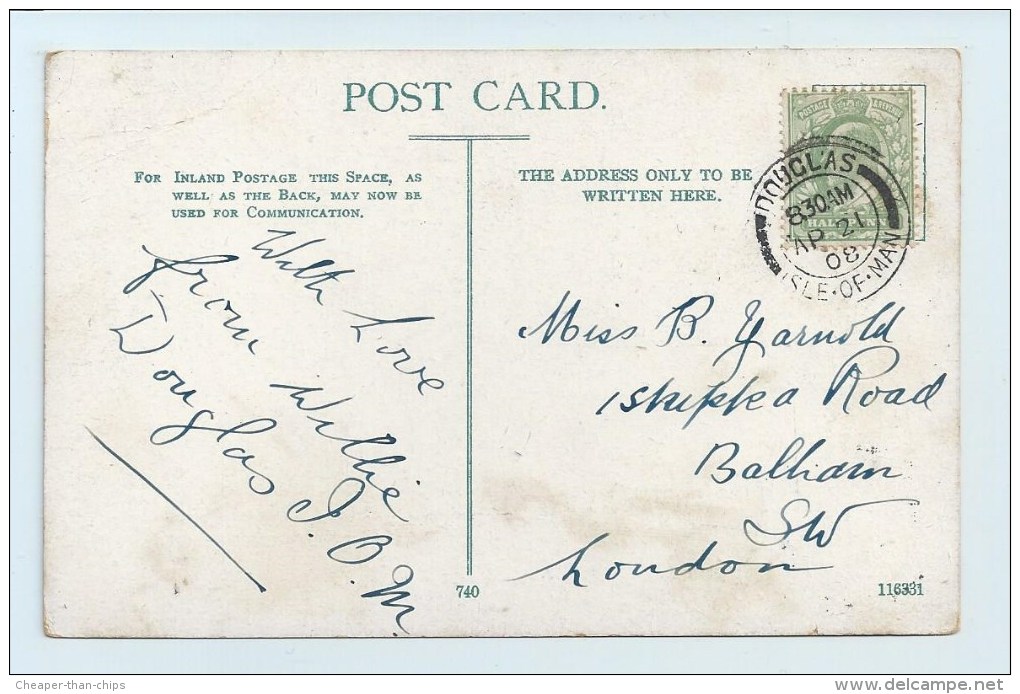 POST CARD.
FOR INLAND POSTAGE THIS SPACE, AS
WELL AS THE BACK, MAY NOW BE
USED FOR COMMUNICATION.
THE ADDRESS ONLY TO BE
WRITTEN HERE.
POSTAGE & REVENUE
DOUGLAS
8 30AM
AP 21
08
ISLE·OF·MAN
With Love
from Willie
Douglas I.O.M.
Miss B. Yarnold
Road
Balham
SW
London
740
116331
Cheaper-than-chips
www.delcampe.net